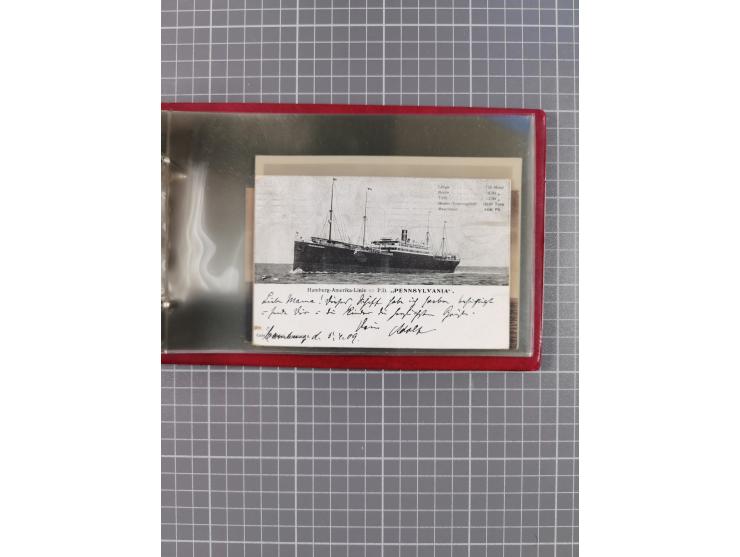 Länge
Breite
Tiefe
Hamburg-Amerika-Linie P.D. „PENNSYLVANIA“.
Liebe Mama! Dieses Schiff habe ich soeben besichtigt
u. sende Dir u. die Kinder die herzlichsten Grüße.
Dein Adolf
Hamburg d. 5.4.09.